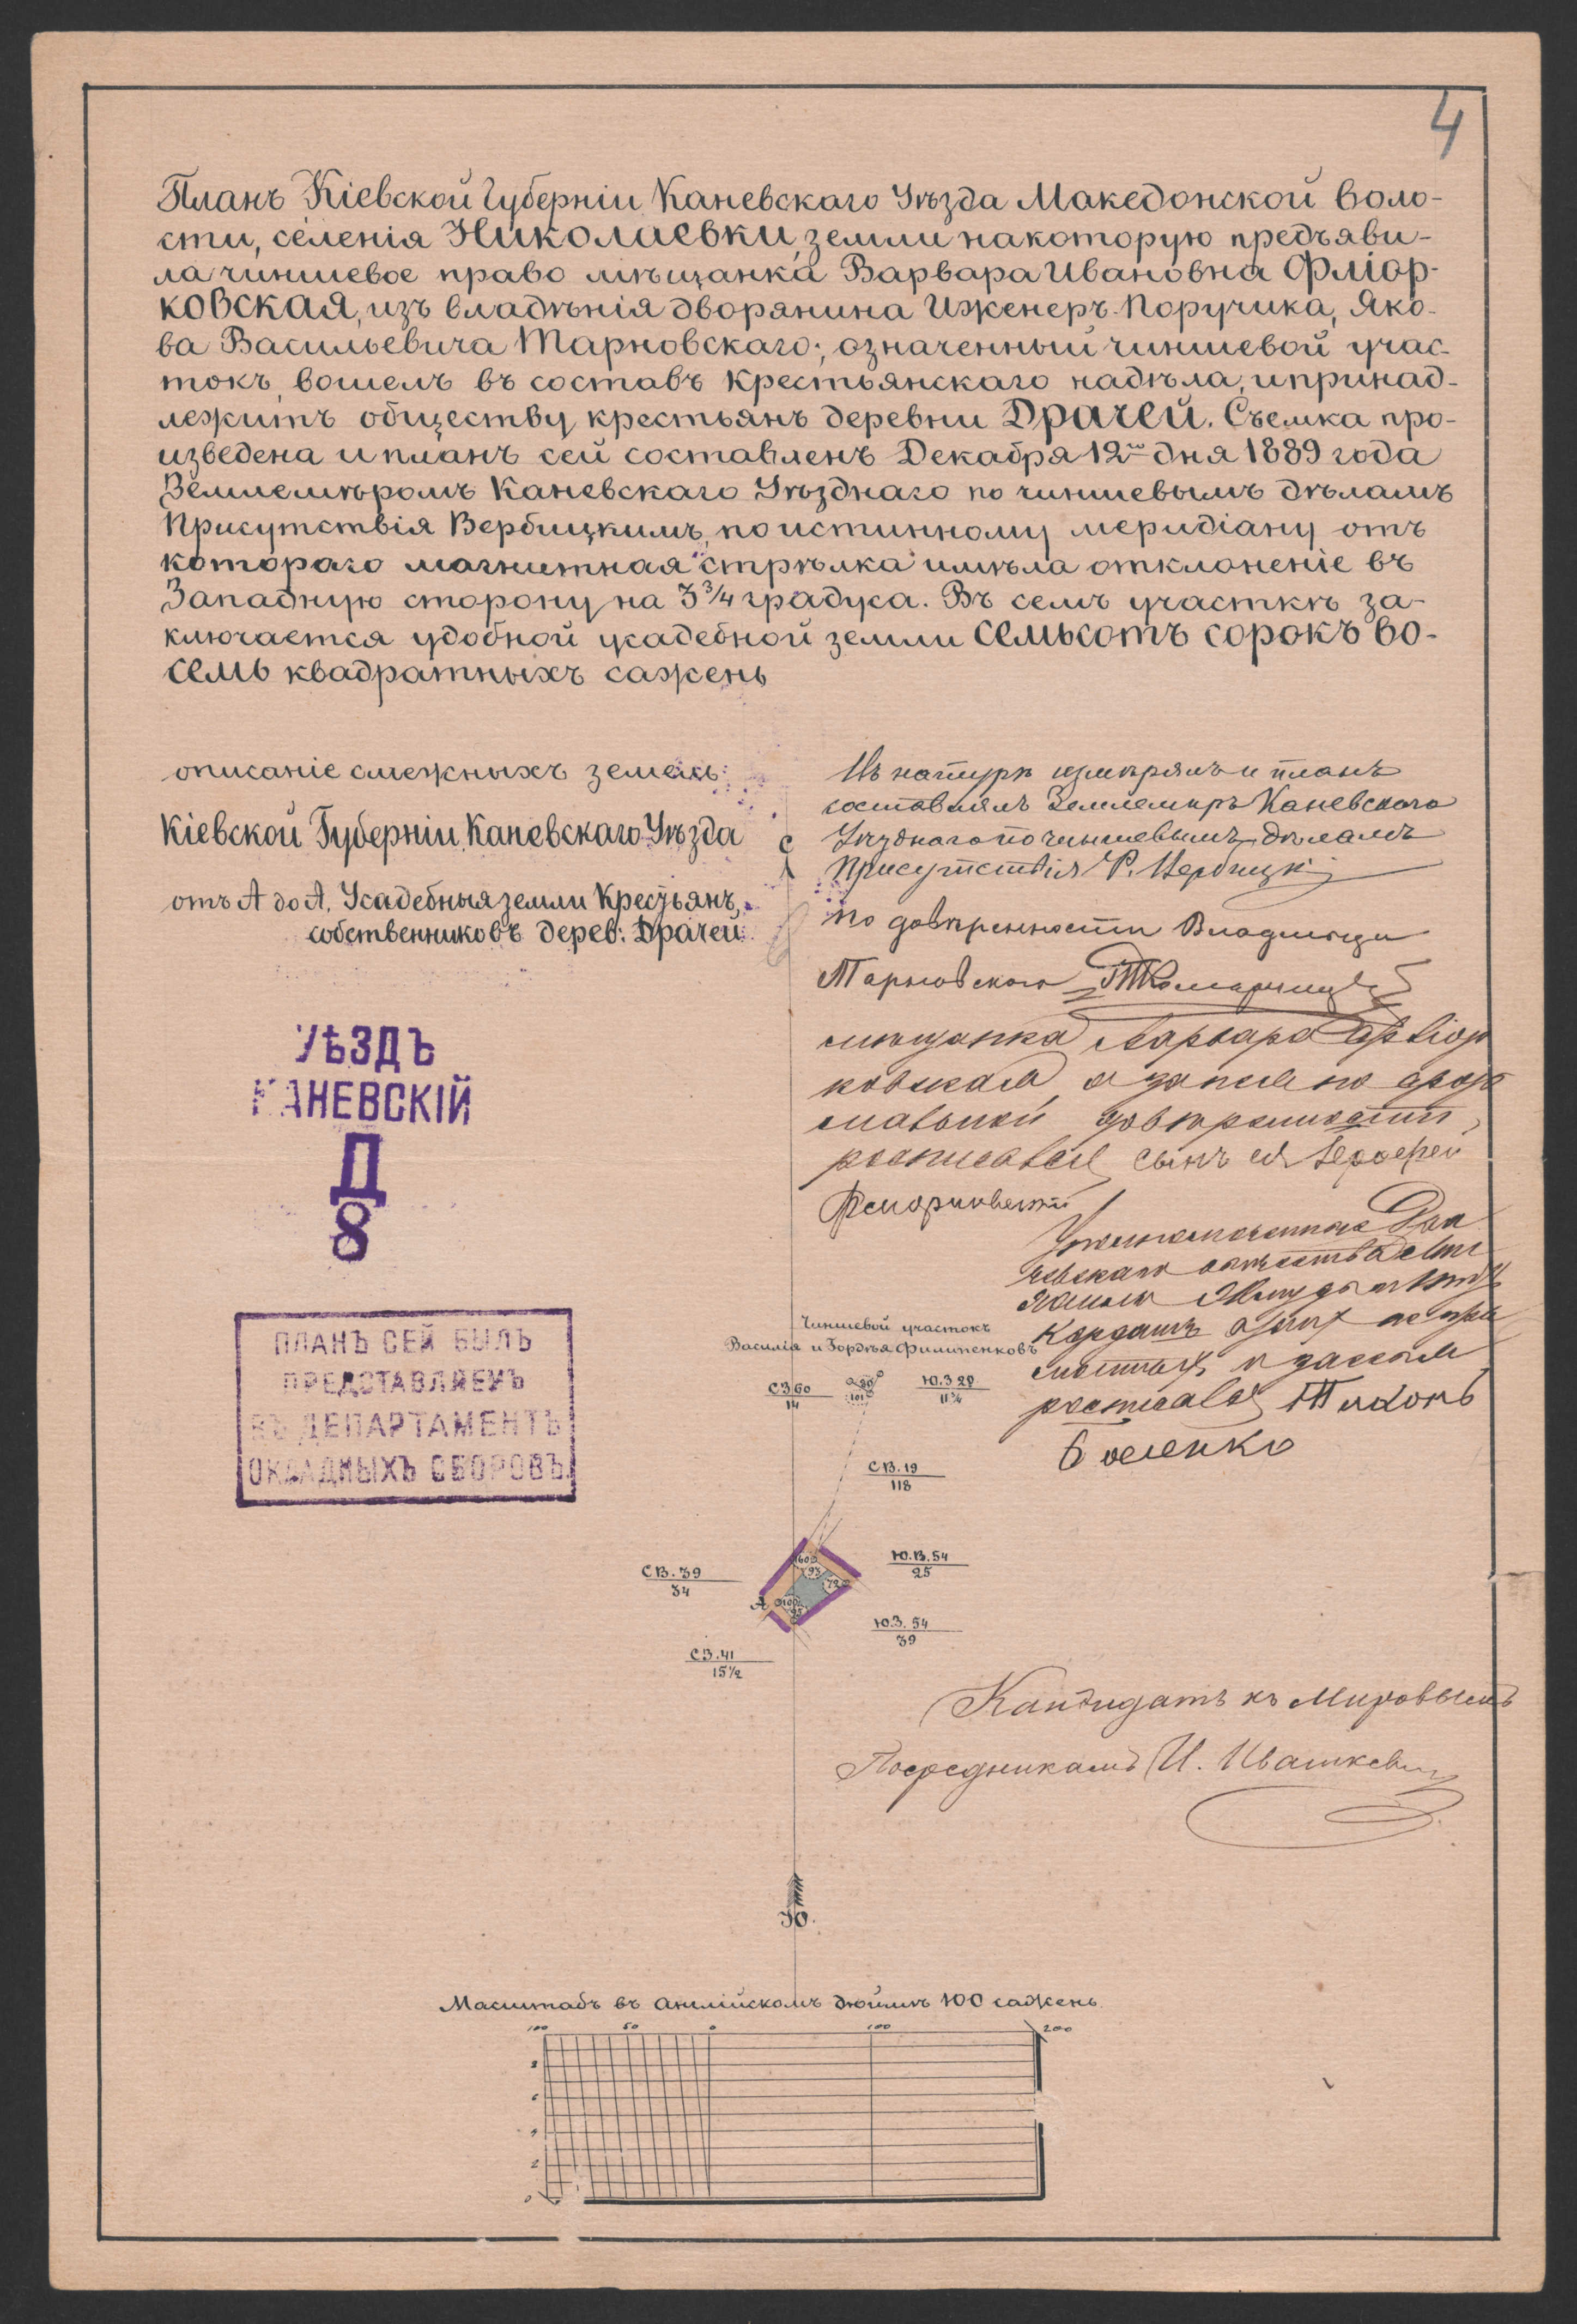 4
Планъ Кіевской Губерніи Каневскаго Уѣзда Македонской воло-
сти, селенія Николаевки, земли на которую предъяви-
ла чиншевое право мѣщанка Варвара Ивановна Фліор-
ковская, изъ владѣнія дворянина Иженеръ-Поручика, Яко-
ва Васильевича Тарновскаго; означенный чиншевой учас-
токъ вошелъ въ составъ крестьянскаго надѣла, и принад-
лежитъ обществу крестьянъ деревни Драчей. Съемка про-
изведена и планъ сей составленъ Декабря 12го дня 1889 года
Землемѣромъ Каневскаго Уѣзднаго по чиншевымъ дѣламъ
Присутствія Вербицкимъ, по истинному меридіану отъ
котораго магнитная стрѣлка имѣла отклоненіе въ
Западную сторону на 3 3/4 градуса. Въ семъ участкѣ за-
ключается удобной усадебной земли семьсотъ сорокъ во-
семь квадратныхъ сажень
описаніе смежныхъ земель:
Кіевской Губерніи Каневскаго Уѣзда
отъ А до А. Усадебныя земли Крестьянъ,
собственниковъ дерев: Драчей
С
Въ натурѣ измѣрялъ и планъ
составлялъ Землемѣръ Каневскаго
Уѣзднаго по чиншевымъ дѣламъ
Присутствія Р. Вербицкій
По довѣренности Владѣльца
Тарновскаго
мѣщанка Варвара Фліор
ковская, а за нея по
довѣренности
росписался сынъ ея
УѢЗДЪ
КАНЕВСКІЙ
Д
8
ПЛАНЪ СЕЙ БЫЛЪ
ПРЕДСТАВЛЯЕМЪ
ВЪ ДЕПАРТАМЕНТЪ
ОКЛАДНЫХЪ СБОРОВЪ.
Уполномоченные Дра
чевскаго общества
а за нихъ негра
мотныхъ
росписался Тихонъ
Чиншевой участокъ
Василія и Гордѣя Филипенковъ
С.З 60
14
Ю.З 29
11 3/4
С.В. 19
118
С.В. 39
34
Ю.В. 54
25
А
Ю.З. 54
39
С.З. 41
15 1/2
Кандидатъ къ Мировымъ
Посредникамъ И. Ивашкевич
Ю.
Масштабъ въ Англійскомъ дюймѣ 100 сажень
100 50 0 100 200
8
6
4
2
0